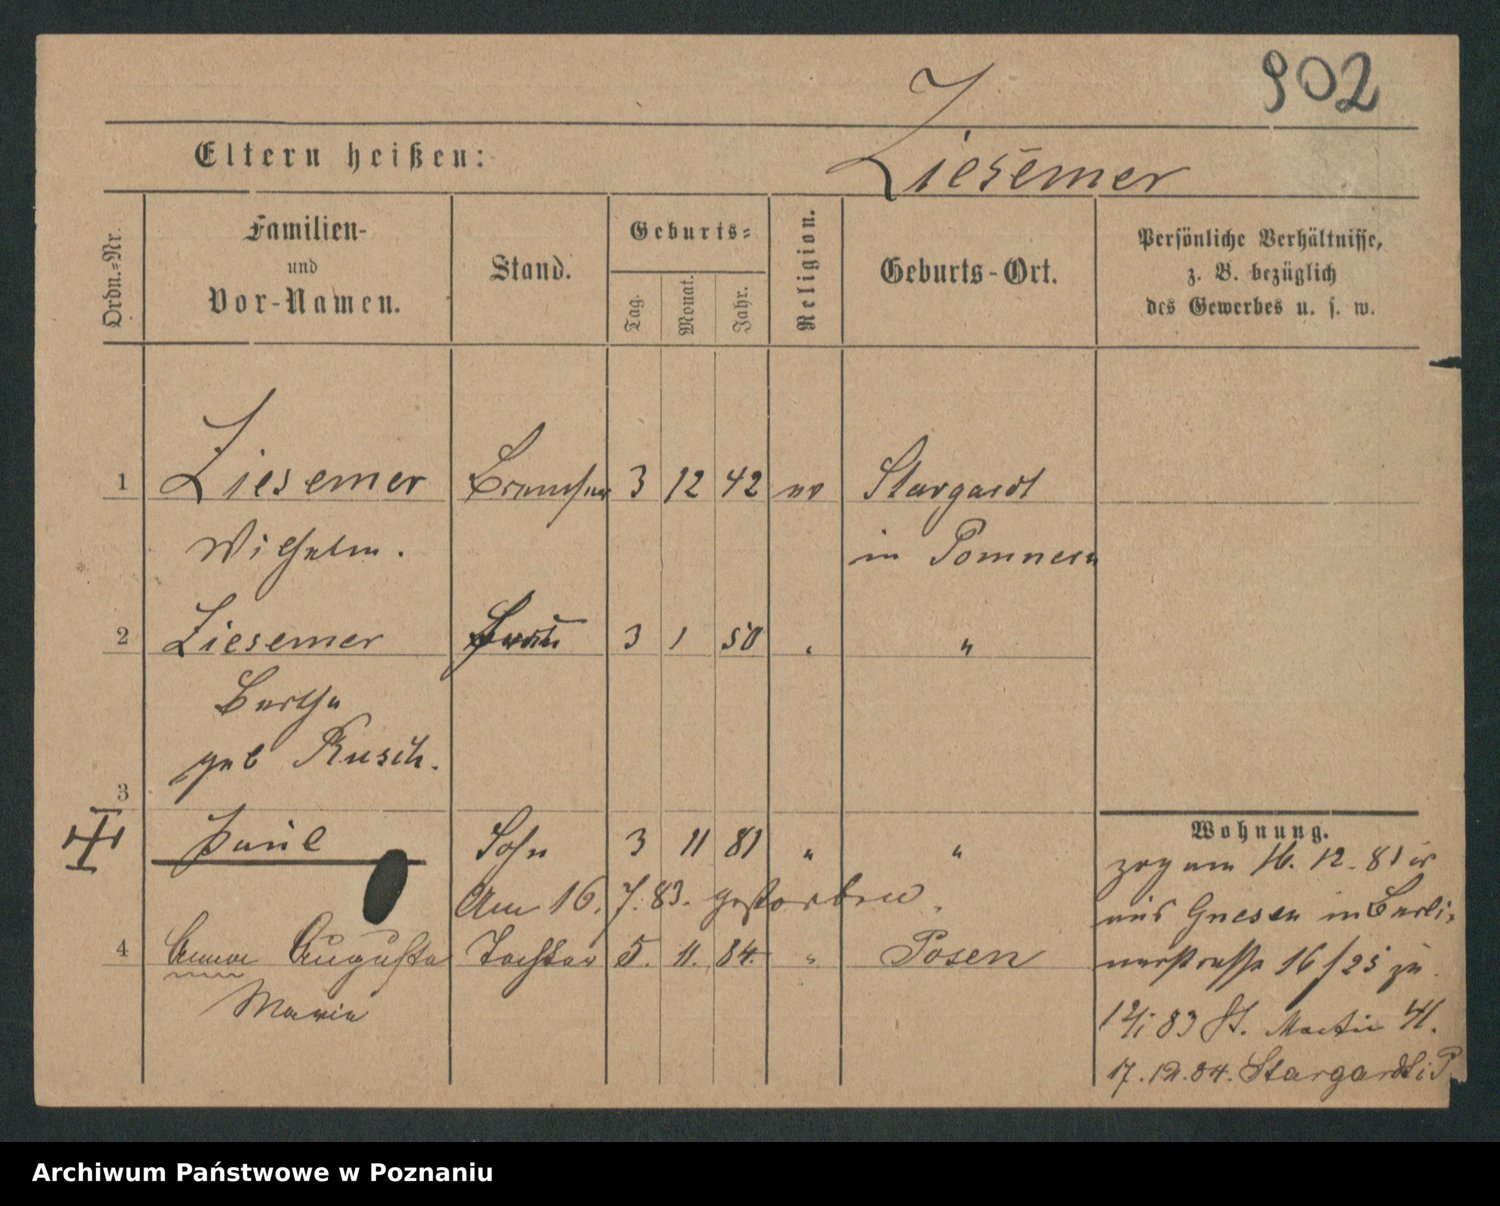 902
Ziesemer
Eltern heißen:
Ordn.-Nr.
Familien-
und
Vor-Namen.
Stand.
Geburts-
Tag.
Monat.
Jahr.
Religion.
Geburts-Ort.
Persönliche Verhältnisse,
z. B. bezüglich
des Gewerbes u. s. w.
1 Ziesemer 3 12 42 ev Stargardt
Wilhelm. in Pommern
2 Ziesemer Frau 3 1 50 " "
Bertha
geb Rusch.
3
Paul Sohn 3 11 81 " "
Am 16. 7. 83. gestorben.
4 Anna Augusta Tochter 5. 11. 84. " Posen
Maria
Wohnung.
zog am 16. 12. 81
aus Gnesen in Berli-
nerstrasse 16/25 zu.
83 St. Martin 41.
17. 12. 84. Stargardt i P
Archiwum Państwowe w Poznaniu